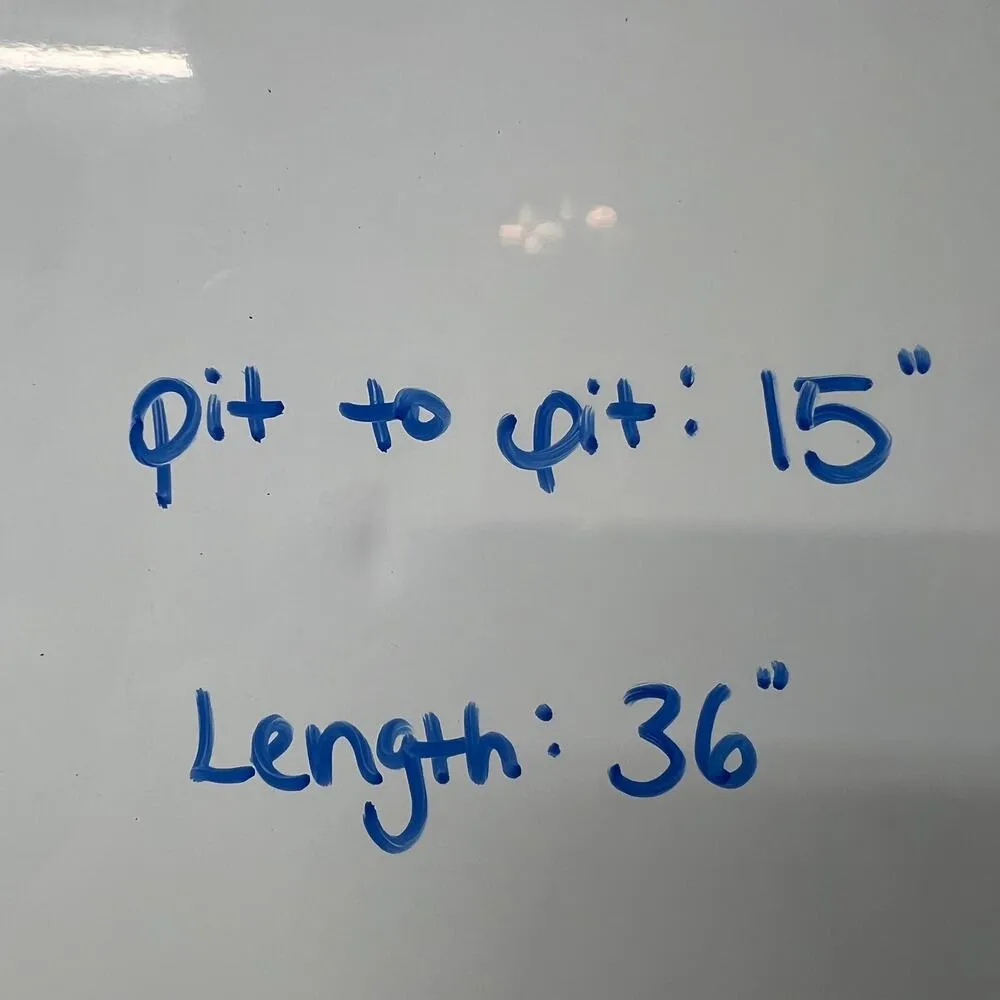 pit to pit: 15"
Length: 36"